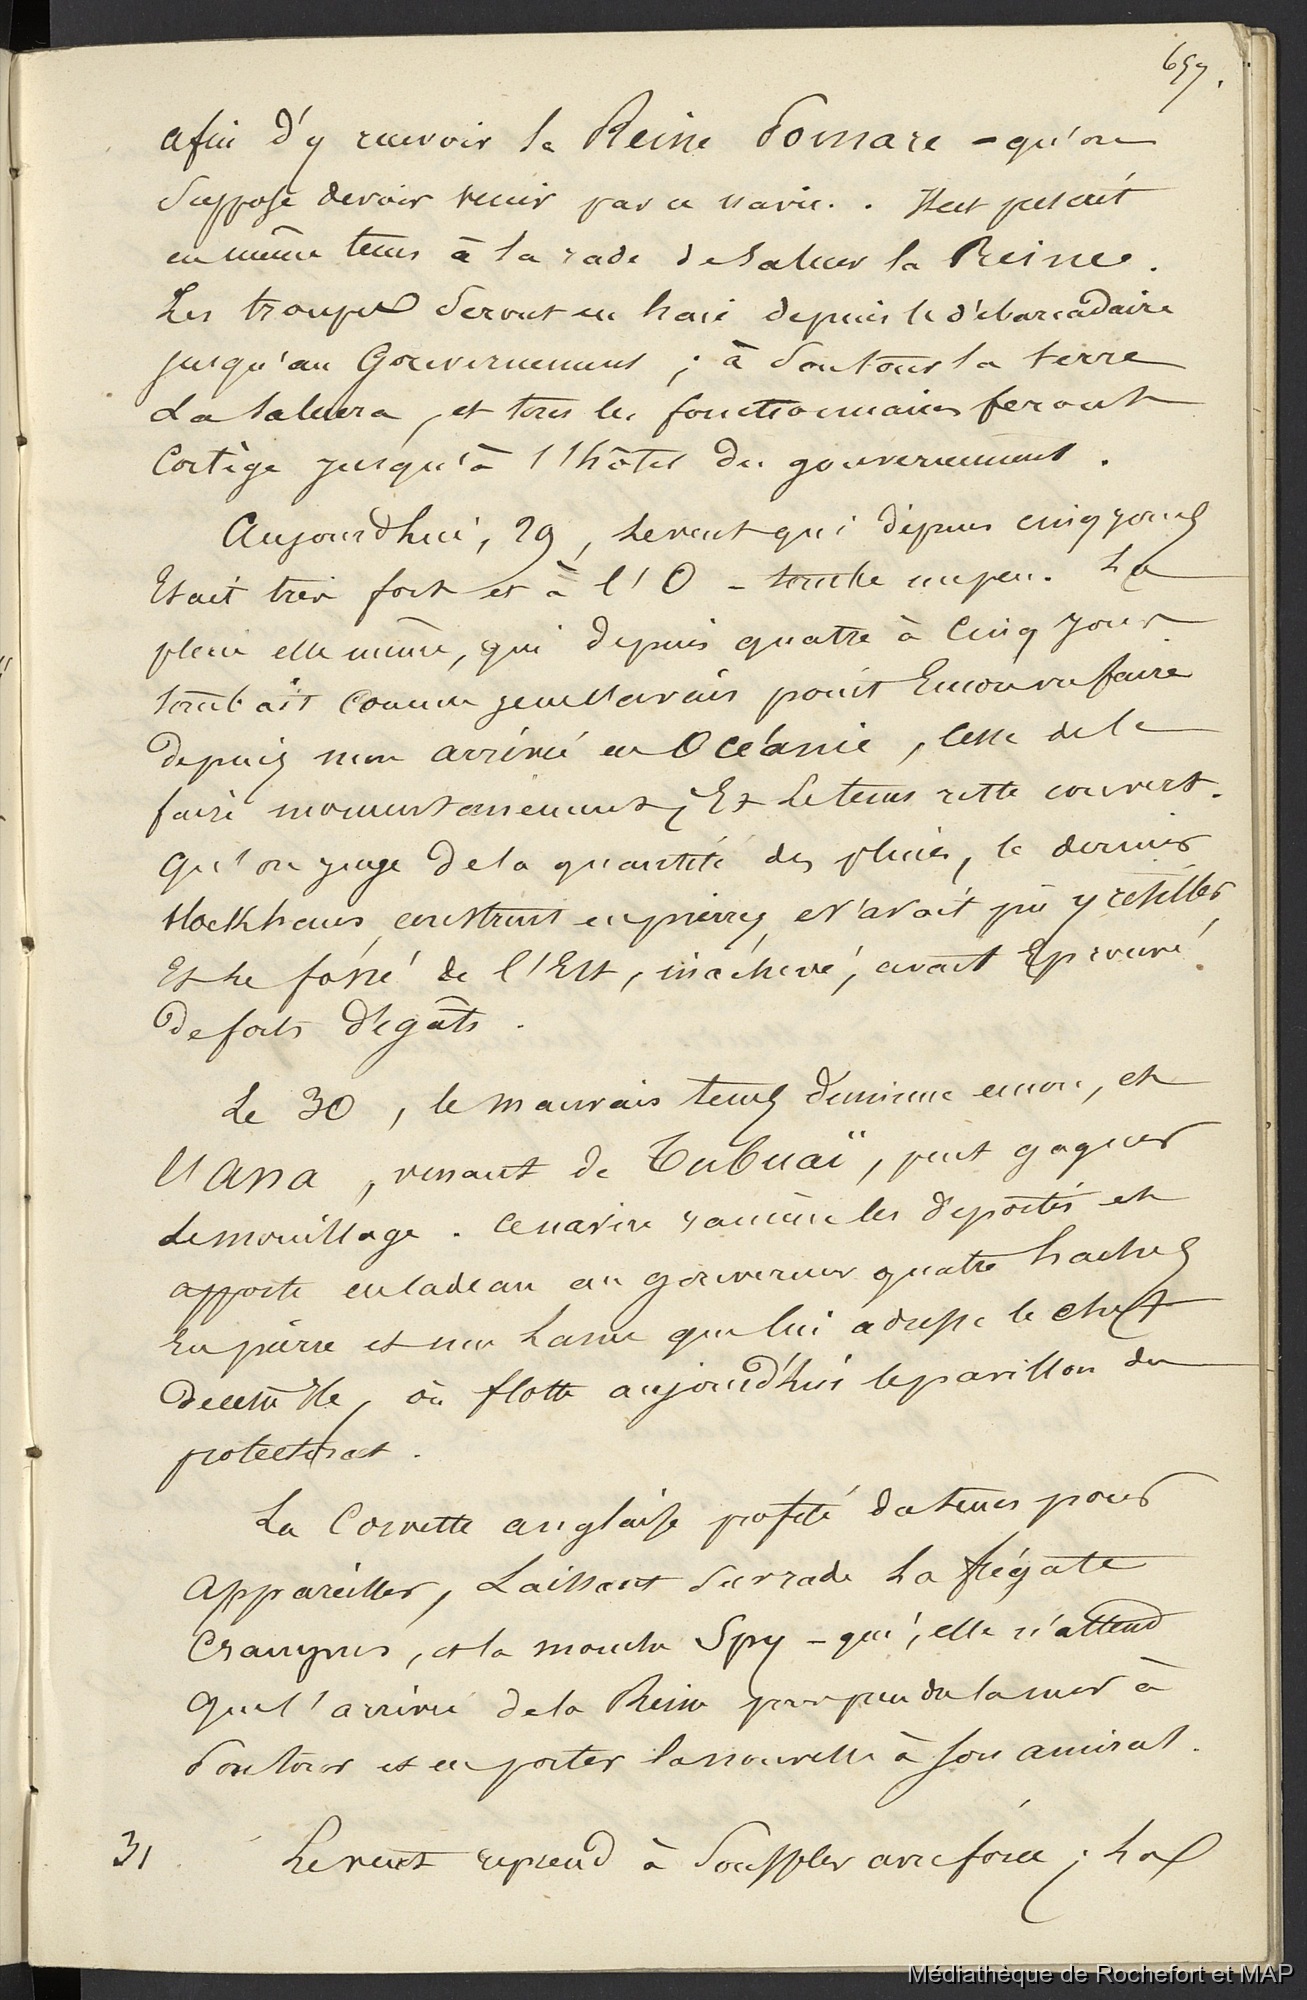 657.
afin d'y recevoir la Reine Pomare - qu'on
suppose devoir venir par ce navire. Il est prescrit
en même tems à la rade de saluer la Reine.
Les troupes seront en haie depuis le débarcadaire
jusqu'au Gouvernement ; à son tour la terre
la saluera, et tous les fonctionnaires feront
Cortège jusqu'à l'hôtel du gouvernement.
Aujourd'hui, 29, le vent qui depuis cinq jours
Etait très fort et à l'O - tombe un peu. La
pluie elle même, qui depuis quatre à cinq jours
tombait comme je ne l'avais point Encore vu faire
depuis mon arrivée en Océanie, cesse de le
faire momentanément, Et le tems reste couvert.
Qu'on juge de la quantité des pluies, le dernier
blockhaus, construit en pierres, n'avait pu y résister
Et le fossé de l'Est, inachevé, avait Eprouvé
de forts dégâts.
Le 30, le mauvais tems diminue encore, et
l'Ana, venant de Tubuaï, peut gagner
le mouillage. Ce navire ramène les déportés et
apporte en cadeau au gouverneur quatre haches
En pierre et une lance que lui adresse le chef
de cette île, où flotte aujourd'hui le pavillon du
protectorat.
La Corvette anglaise profite du tems pour
appareiller, laissant sur rade la frégate
Crampus, et la mouche Spy - qui, elle n'attend
que l'arrivée de la Reine pour prendre la mer à
son tour et en porter la nouvelle à son amiral.
31 Le vent reprend à souffler avec force ; la
Médiathèque de Rochefort et MAP